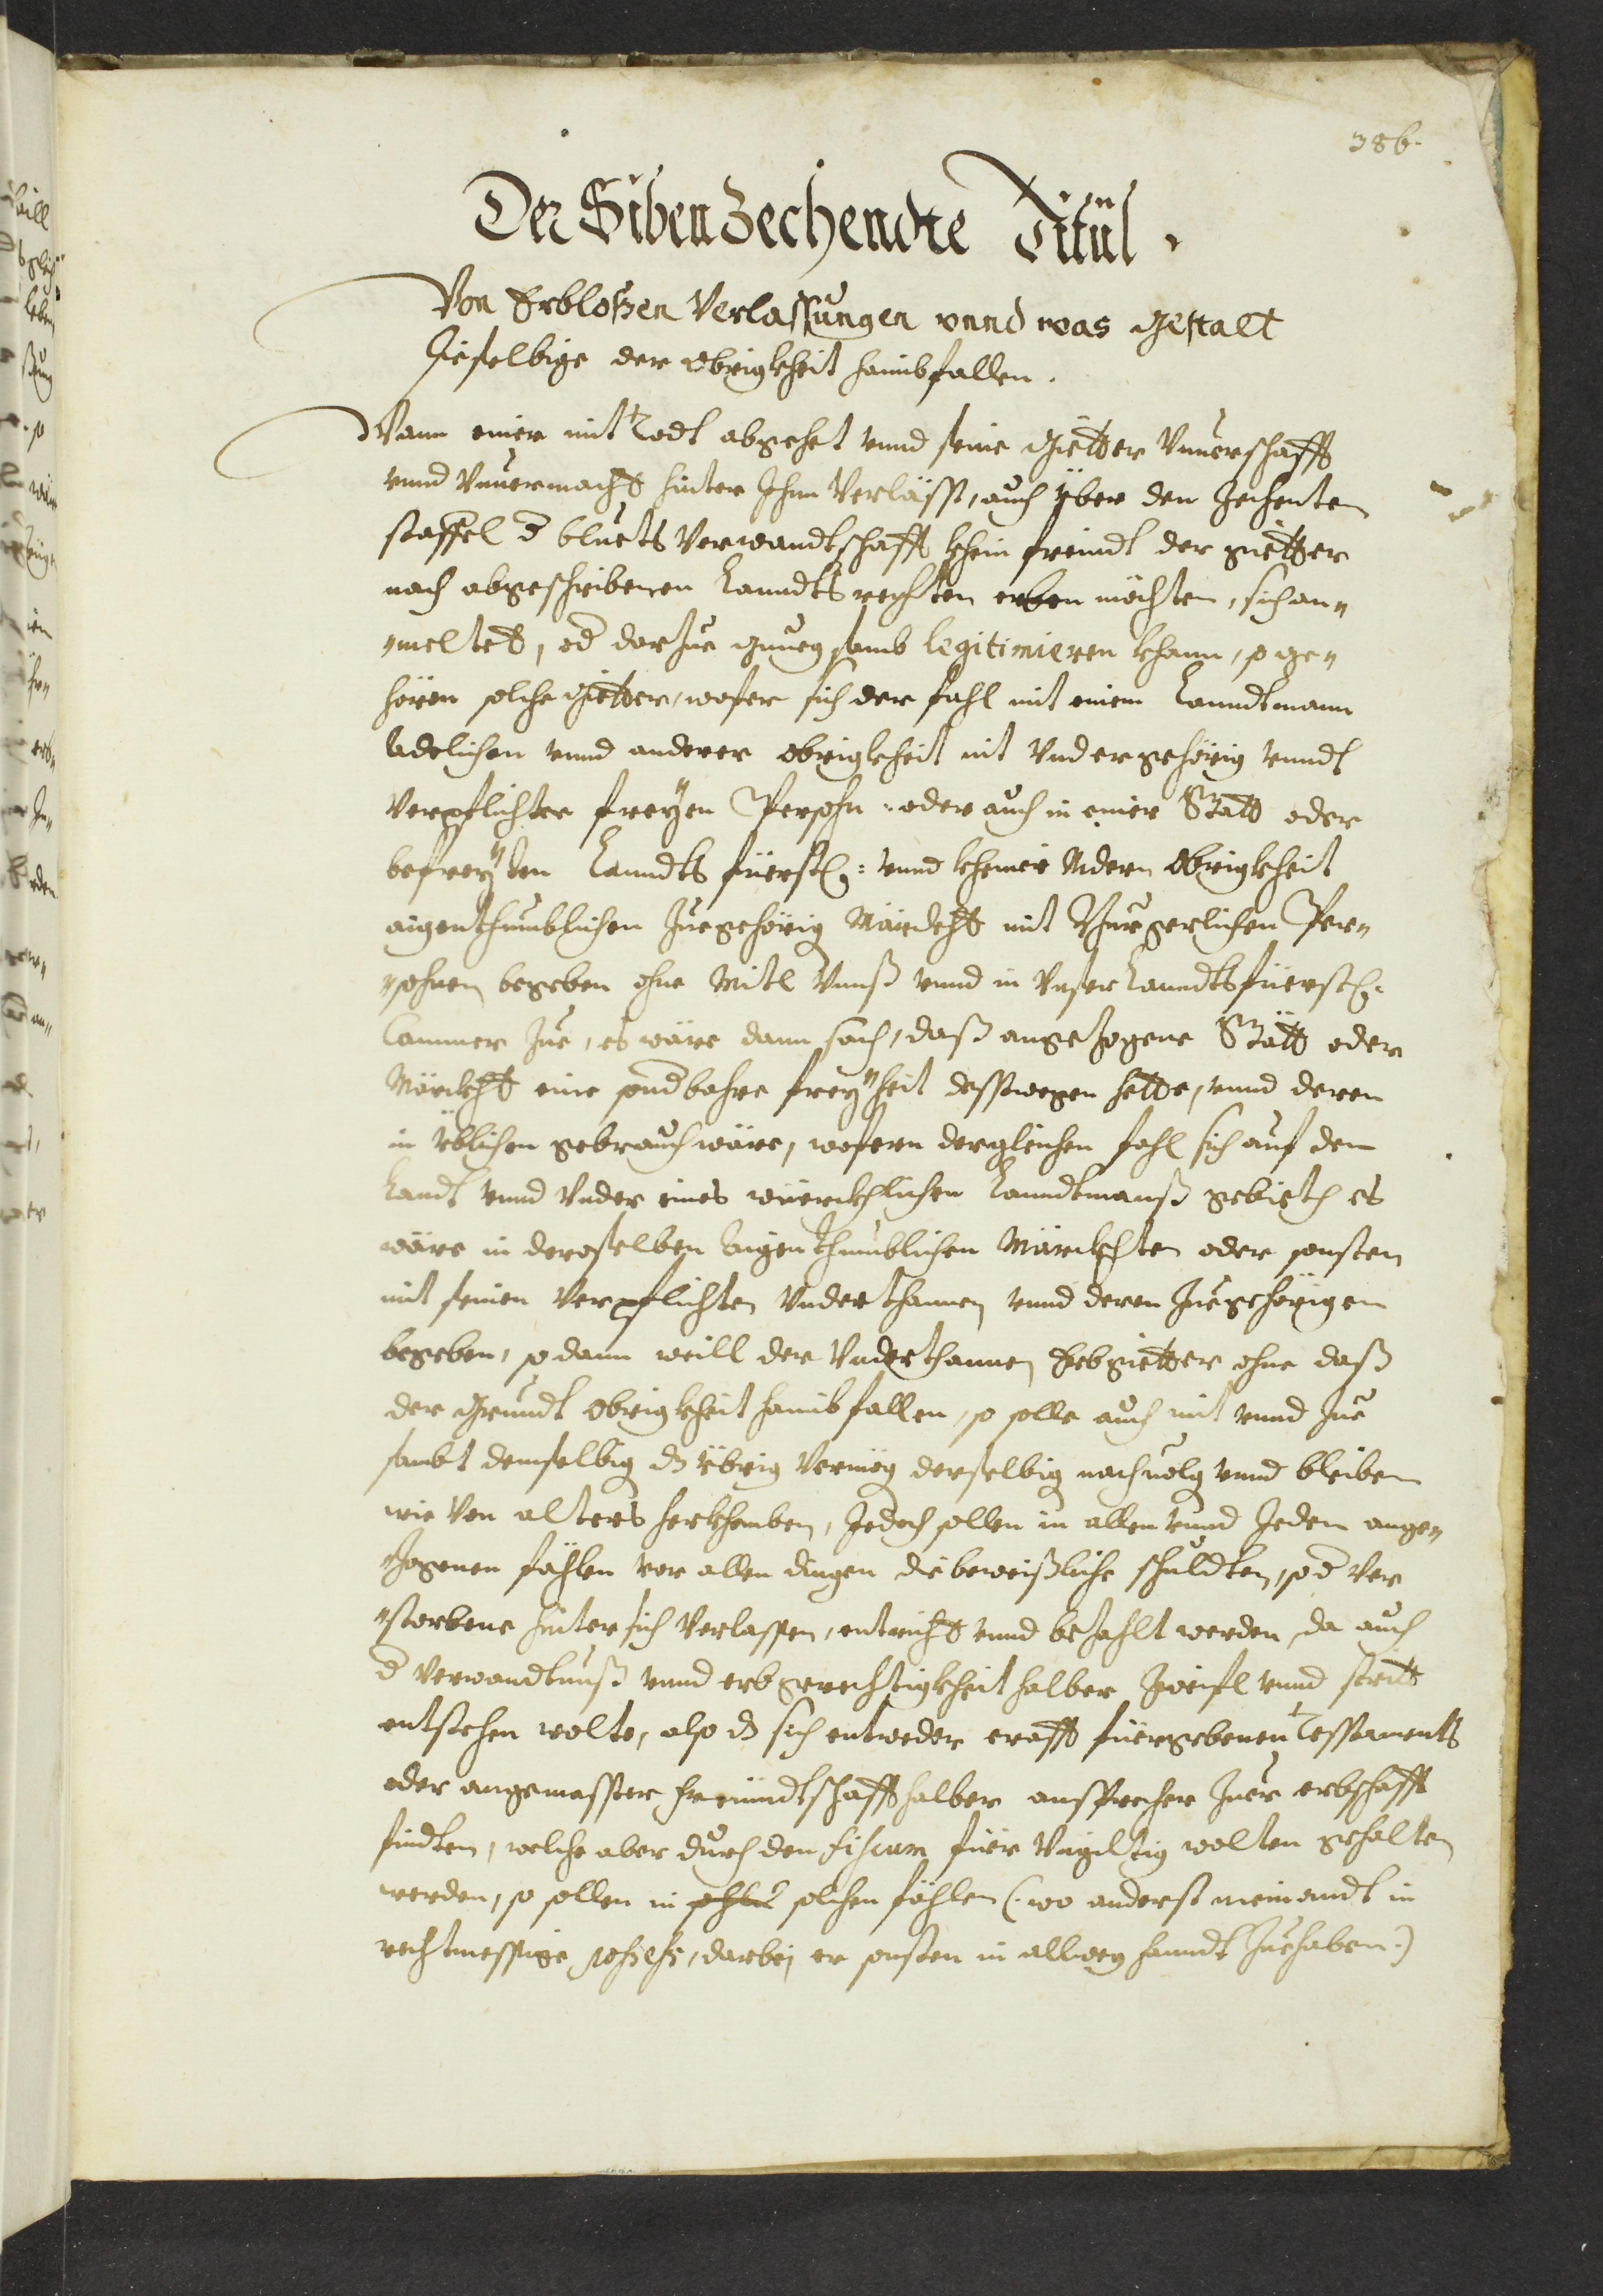 386.
Der Sibenzechendte Titul.
Von Erbloßen Verlassungen vnnd was gestalt
dieselbige der obrigkheit haimbfallen.
Wann einer mit Todt abgehet vnnd seine Güetter Vnuerschafft
vnnd Vnuermacht hinter Ihm Verlässt, auch yber den Zechenten
staffel d bluets Verwandtschafft khein freindt der güetter
nach abgeschribenen Lanndts rechten erben möchten, sich an„
„meltet, od darzue gnuegsamb legitimieren khann, so ge„
hören solche Güetter, wofer sich der fahl mit einem Lanndtmann
Adelichen vnnd anderer obrigkheit nit Vndergehörig vnndt
Verpflichter freyen Persohn: oder auch in einer Statt oder
befreyten Lanndts fürstl: vnnd kheiner Andern Obrigkheit
aigenthumblichen Zuegehörig Märckht mit Burgerlichen Per„
„sohnen begeben ohne Mitl Vnnß vnnd in Vnser Lanndtsfürstl:
Cammer Zue, es wäre dann sach, daß angezogene Stätt oder
Märckht eine sondbahre freyheit desswegen hette, vnnd deren
in Yblichen gebrauch wäre, wofern dergleichen fahl sich auf dem
Landt vnnd Vnder eines würckhlichen Lanndtmanß gebieth es
wäre in deroselben Aigenthumblichen Märckhten oder sonsten
mit seinen Verpflichten Vnderthannen vnnd deren Zuegehörigen
begeben, so dann weill der Vnderthannen Erbgüetter ohne daß
der Grundt Obrigkheit haimbfallen, so solle auch mit vnnd Zue
sambt demselbig dz Ybrig Vermög derselbig nachuolg vnnd bleiben
wie Von alters herkhomben, Jedoch sollen in allen vnnd Jeden ange„
Zogenen fählen vor allen dingen die beweißliche schuldten, so d Ver
„storbene hinter sich Verlassen, entricht vnnd bezahlt werden, da auch
d Verwandtnuß vnnd erbgerechtigkheit halber Zweifl vnnd stritt
entstehen wolte, also dz sich entweder crafft fürgebenen Testaments
oder angemasster freundtschafft halber ansprecher Zuer erbschafft
findten, welche aber durch den fiscum füer Vngiltig wolten gehalten
werden, so sollen in solchen fählen (: wo anderst niemandt in
rechtmessige , darbej er sonsten in allweg handt Zuehaben :)